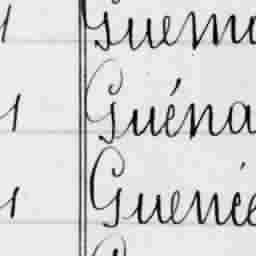 1 Guem
1 Guéna
1 Guenée